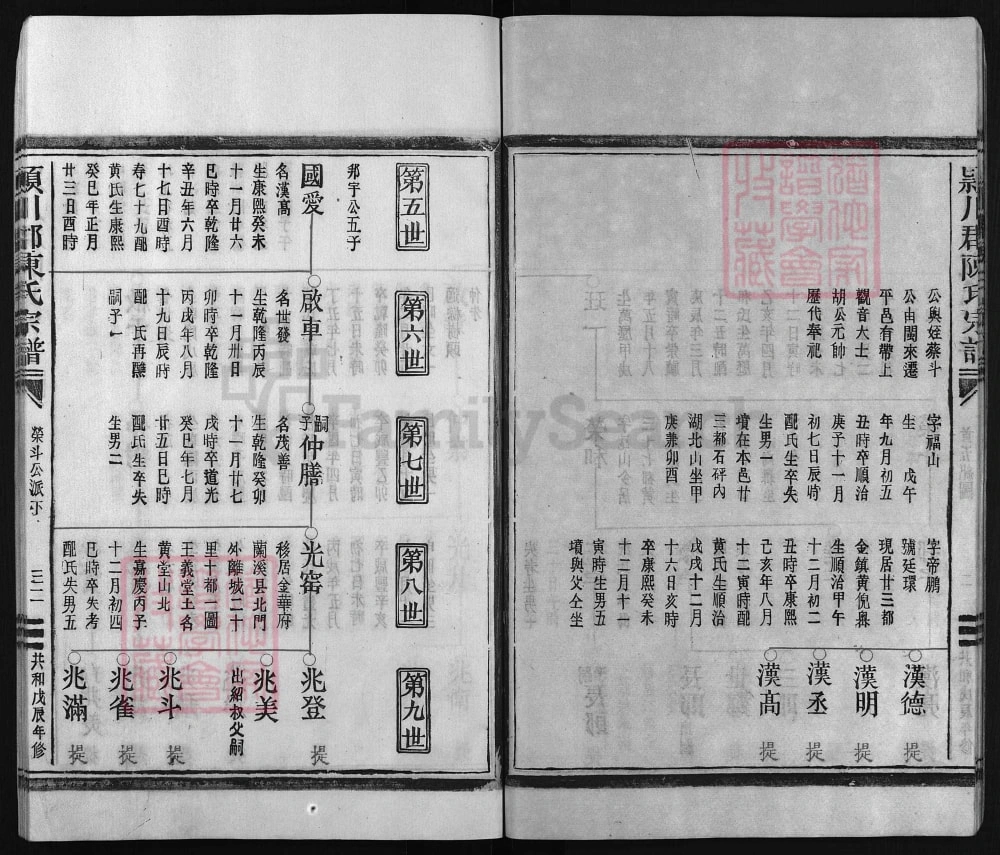 潁川郡陳氏宗譜
公與姪蔡斗
公由閩來遷
平邑有帶上
觀音大士二
胡公元帥七
歷代奉祀
字福山
生 戊午
年九月初五
丑時卒順治
庚子十一月
初七日辰時
配氏生卒失
生男一
墳在本邑廿
三都石砰內
湖北山坐甲
庚兼卯酉
字帝鵬
號廷環
現居廿三都
金鎮黃倪粵
生順治甲午
十二月初二
丑時卒康熙
己亥年八月
十二寅時配
黃氏生順治
戊戌十二月
十六日亥時
卒康熙癸未
十二月十一
寅時生男五
墳與父仝坐
漢德 提
漢明 提
漢丞 提
漢高 提
第五世
第六世
第七世
第八世
第九世
邦宇公五子
國愛
名漢高
生康熙癸未
十一月廿六
巳時卒乾隆
辛丑年六月
十七日酉時
春七十九配
黃氏生康熙
癸巳年正月
廿三日酉時
啟車
名世發
生乾隆丙辰
十一月卅日
卯時卒乾隆
丙戌年八月
十九日辰時
配 氏再醮
嗣子一
嗣子仲膳
名茂善
生乾隆癸卯
十一月廿七
戌時卒道光
癸巳年七月
廿五日巳時
配氏生卒失
生男二
光窰
移居金華府
蘭溪縣北門
外離城二十
里十都一圖
王義堂土名
黃堂山北
生嘉慶丙子
十二月初四
巳時卒失考
配氏失男五
兆登 提
兆美
出紹叔父嗣
兆斗 提
兆雀 提
兆滿 提
潁川郡陳氏宗譜
榮斗公派下
三一
共和戊辰年修
FamilySearch